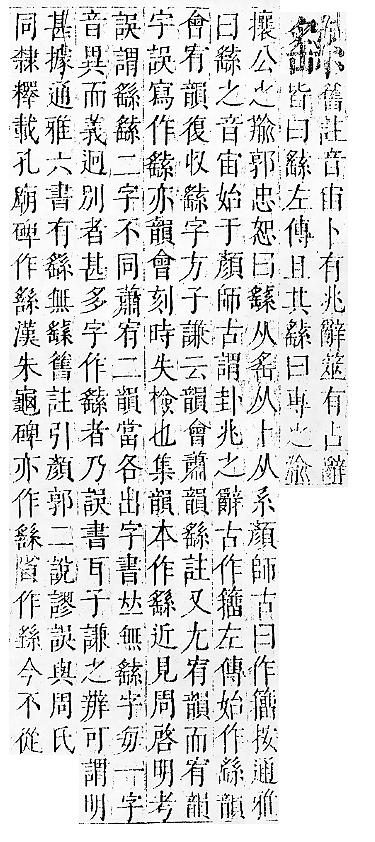 䌛舊註音宙卜有兆辭筮有占辭
皆曰䌛左傳且其䌛曰專之渝
攘公之羭郭忠恕曰䌛从䍃从卜从系顏師古曰作籀按通雅
曰䌛之音宙始于顏師古謂卦兆之辭古作籀左傳始作繇韻
會宥韻復收䌛字方子謙云韻會蕭韻繇註又尤宥韻而宥韻
字誤寫作䌛亦韻會刻時失檢也集韻本作繇近見周啓明考
誤謂繇䌛二字不同蕭宥二韻當各出字書𠀤無䌛字每一字
音異而義迥別者甚多字作䌛者乃誤書耳子謙之辨可謂明
甚據通雅六書有繇無䌛舊註引顏郭二說謬誤與周氏
同隸釋載孔廟碑作繇漢朱龜碑亦作繇省作今不從